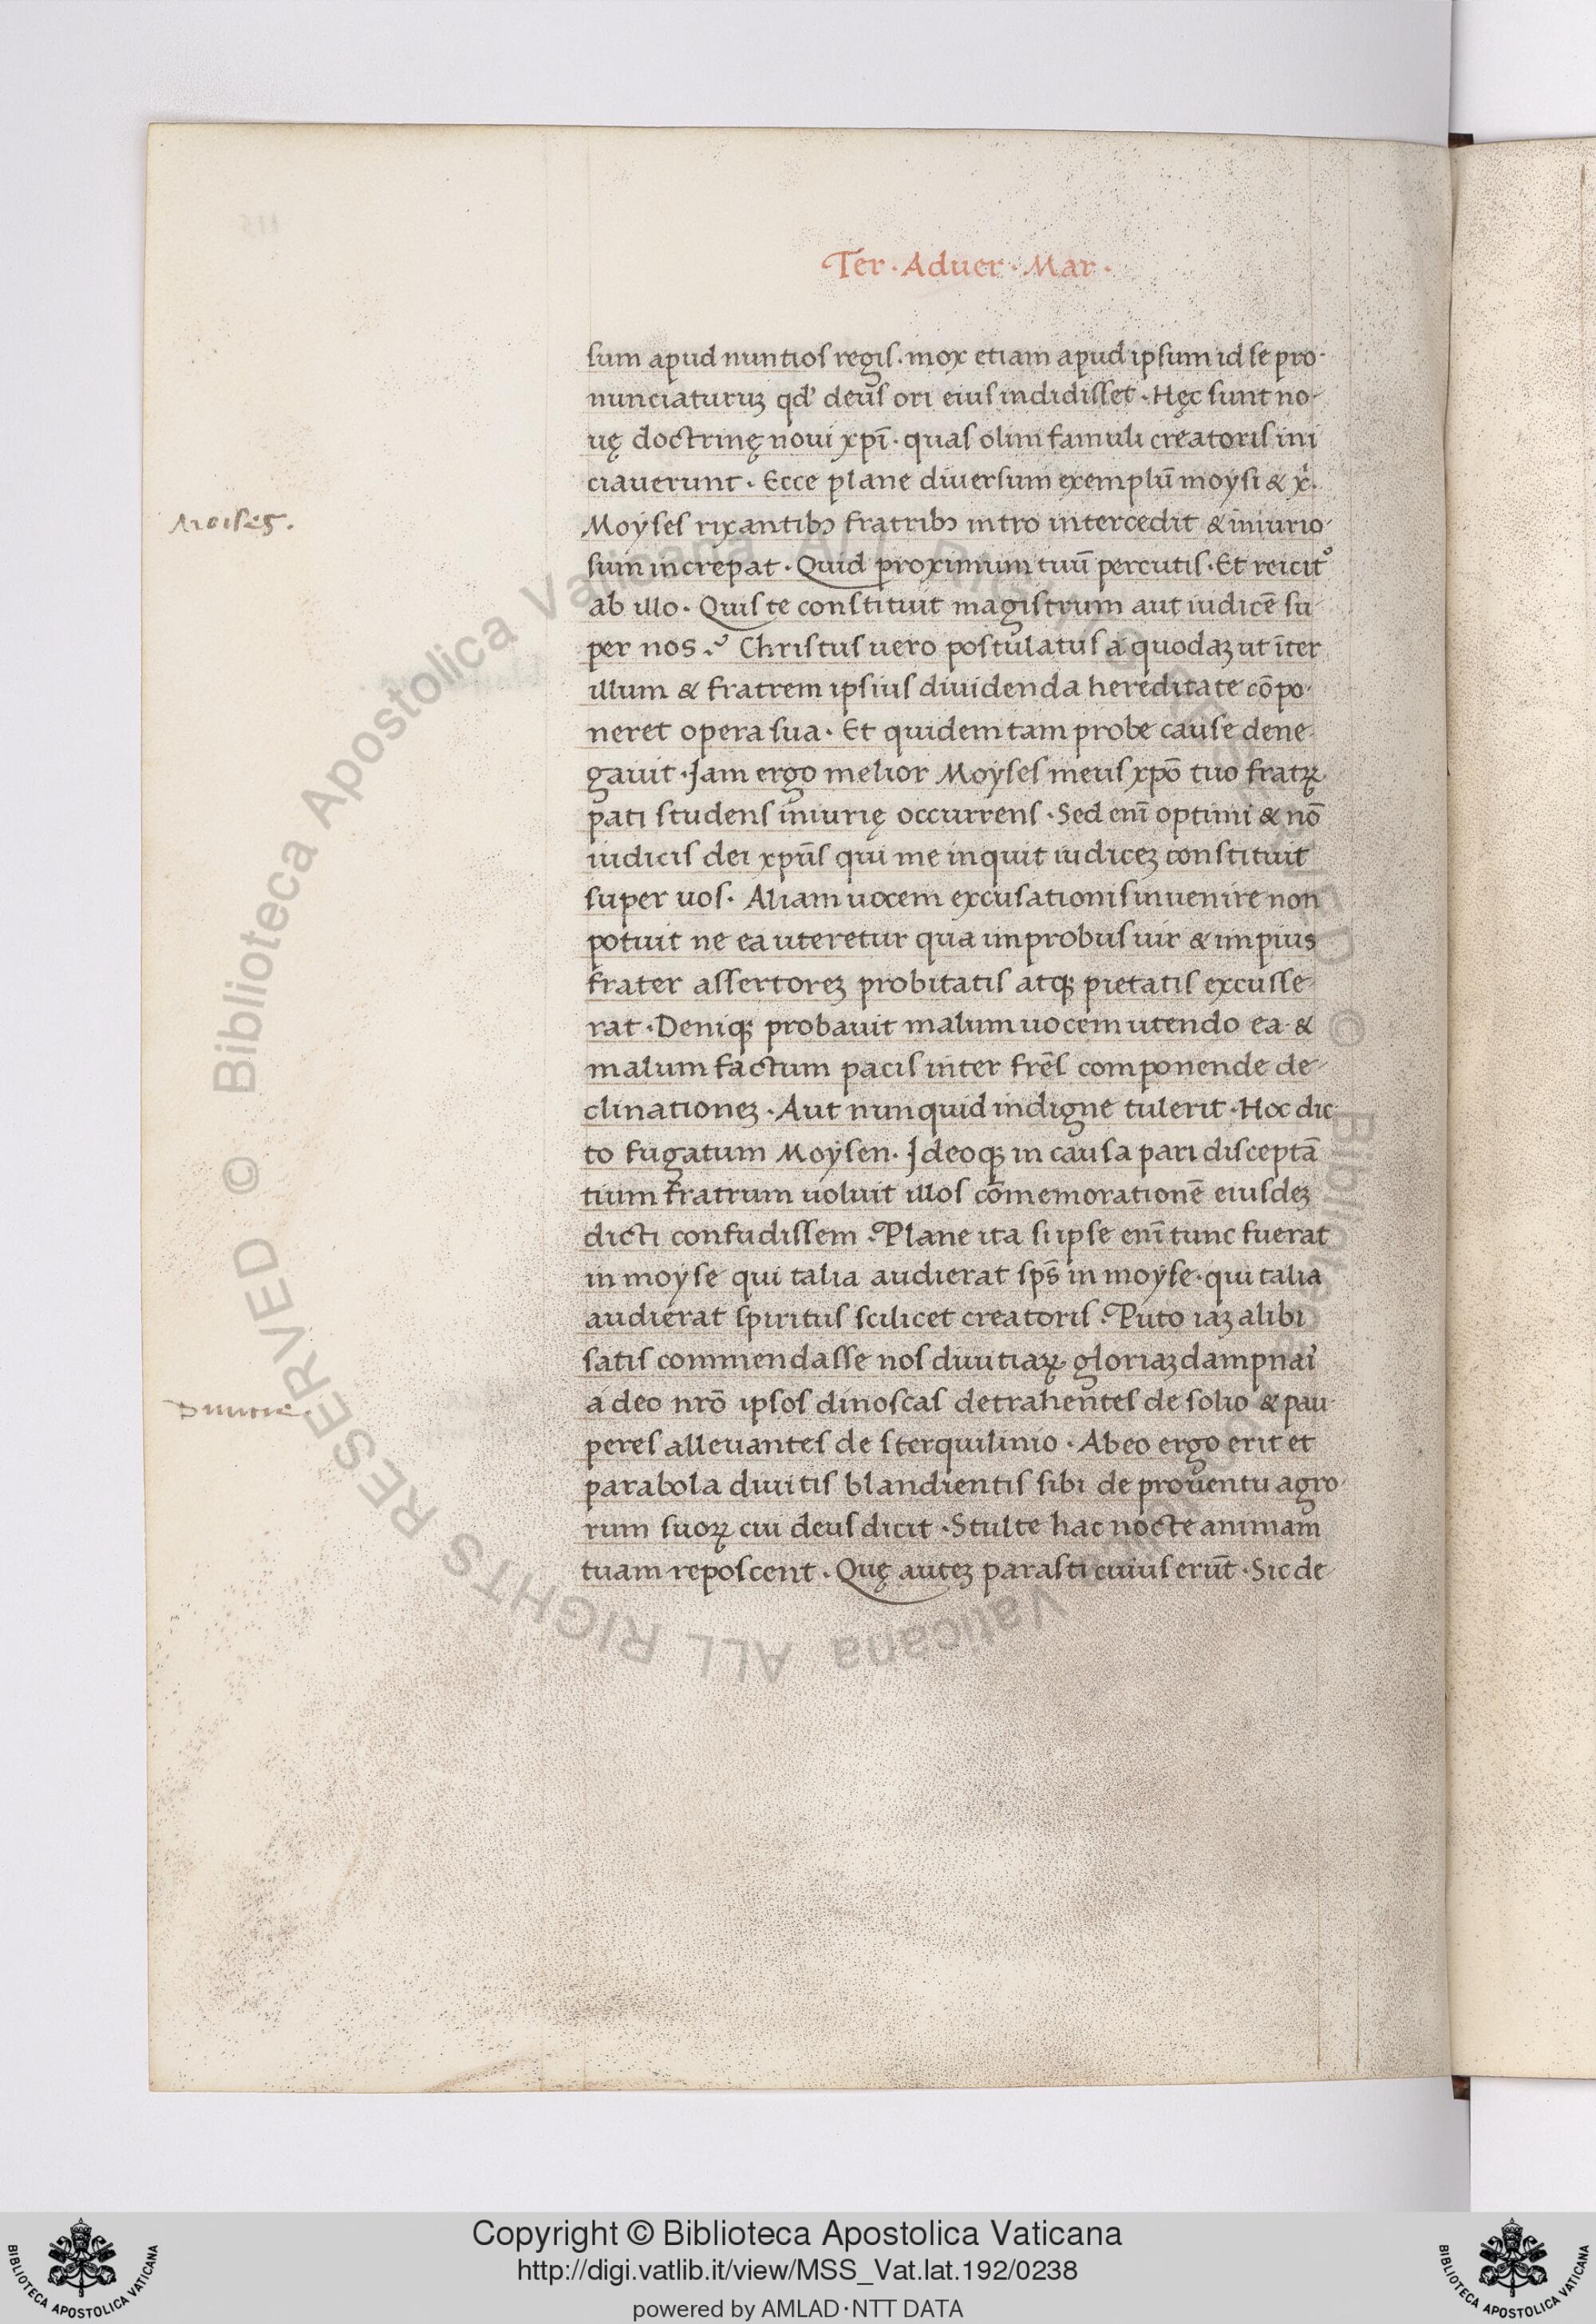 Ter · Aduer · Mar ·
sum apud nuntios regis · mox etiam apud ipsum id se pro-
nunciaturuꝫ qd' deus ori eius indidisset · Hęc sunt no-
uę doctrinę noui xpī · quas olim famuli creatoris ini
ciauerunt · Ecce plane diuersum exemplū moysi & x̓.
Moyses rixantibꝰ fratribꝰ intro intercedit & iniurio-
sum increpat · Quid proximum tuū percutis · Et reicitᷣ
ab illo · Quis te constituit magistrum aut iudicē su-
per nos ? Christus uero postulatus a quodaꝫ ut īter
illum & fratrem ipsius diuidenda hereditate cōpo-
neret opera sua · Et quidem tam probe cause dene-
gauit · Jam ergo melior Moyses meus xpō tuo fratꝝ
pati studens iniurię occurrens · Sed enī optimi & nō
iudicis dei xpūs qui me inquit iudiceꝫ constituit
super uos · Aliam uocem excusationis inuenire non
potuit ne ea uteretur qua improbus uir & impius
frater assertoreꝫ probitatis atqꝫ pietatis excusse-
rat · Deniqꝫ probauit malum uocem utendo ea &
malum factum pacis inter frēs componende de-
clinationeꝫ · Aut nunquid indigne tulerit · Hoc dic-
to fugatum Moysen · Jdeoqꝫ in causa pari disceptā
tium fratrum uoluit illos cōmemorationē eiusdeꝫ
dicti confudissem · Plane ita si ipse enī tunc fuerat
in moyse qui talia audierat sps̄ in moyse · qui talia
audierat spiritus scilicet creatoris · Puto iaꝫ alibi
satis commendasse nos diuitiaꝝ gloriaꝫ dampnaı̓
a deo nrō ipsos dinoscas detrahentes de solio & pau-
peres alleuantes de sterquilinio · Ab eo ergo erit et
parabola diuitis blandientis sibi de prouentu agro-
rum suoꝝ cui deus dicit · Stulte hac nocte animam
tuam reposcent · Quę auteꝫ parasti cuius erūt · Sic de-
Moises.
Diuitie
© Biblioteca Apostolica Vaticana ALL RIGHTS RESERVED © Biblioteca Apostolica Vaticana ALL RIGHTS RESERVED
Copyright © Biblioteca Apostolica Vaticana
http://digi.vatlib.it/view/MSS_Vat.lat.192/0238
powered by AMLAD·NTT DATA
BIBLIOTECA APOSTOLICA VATICANA
BIBLIOTECA APOSTOLICA VATICANA